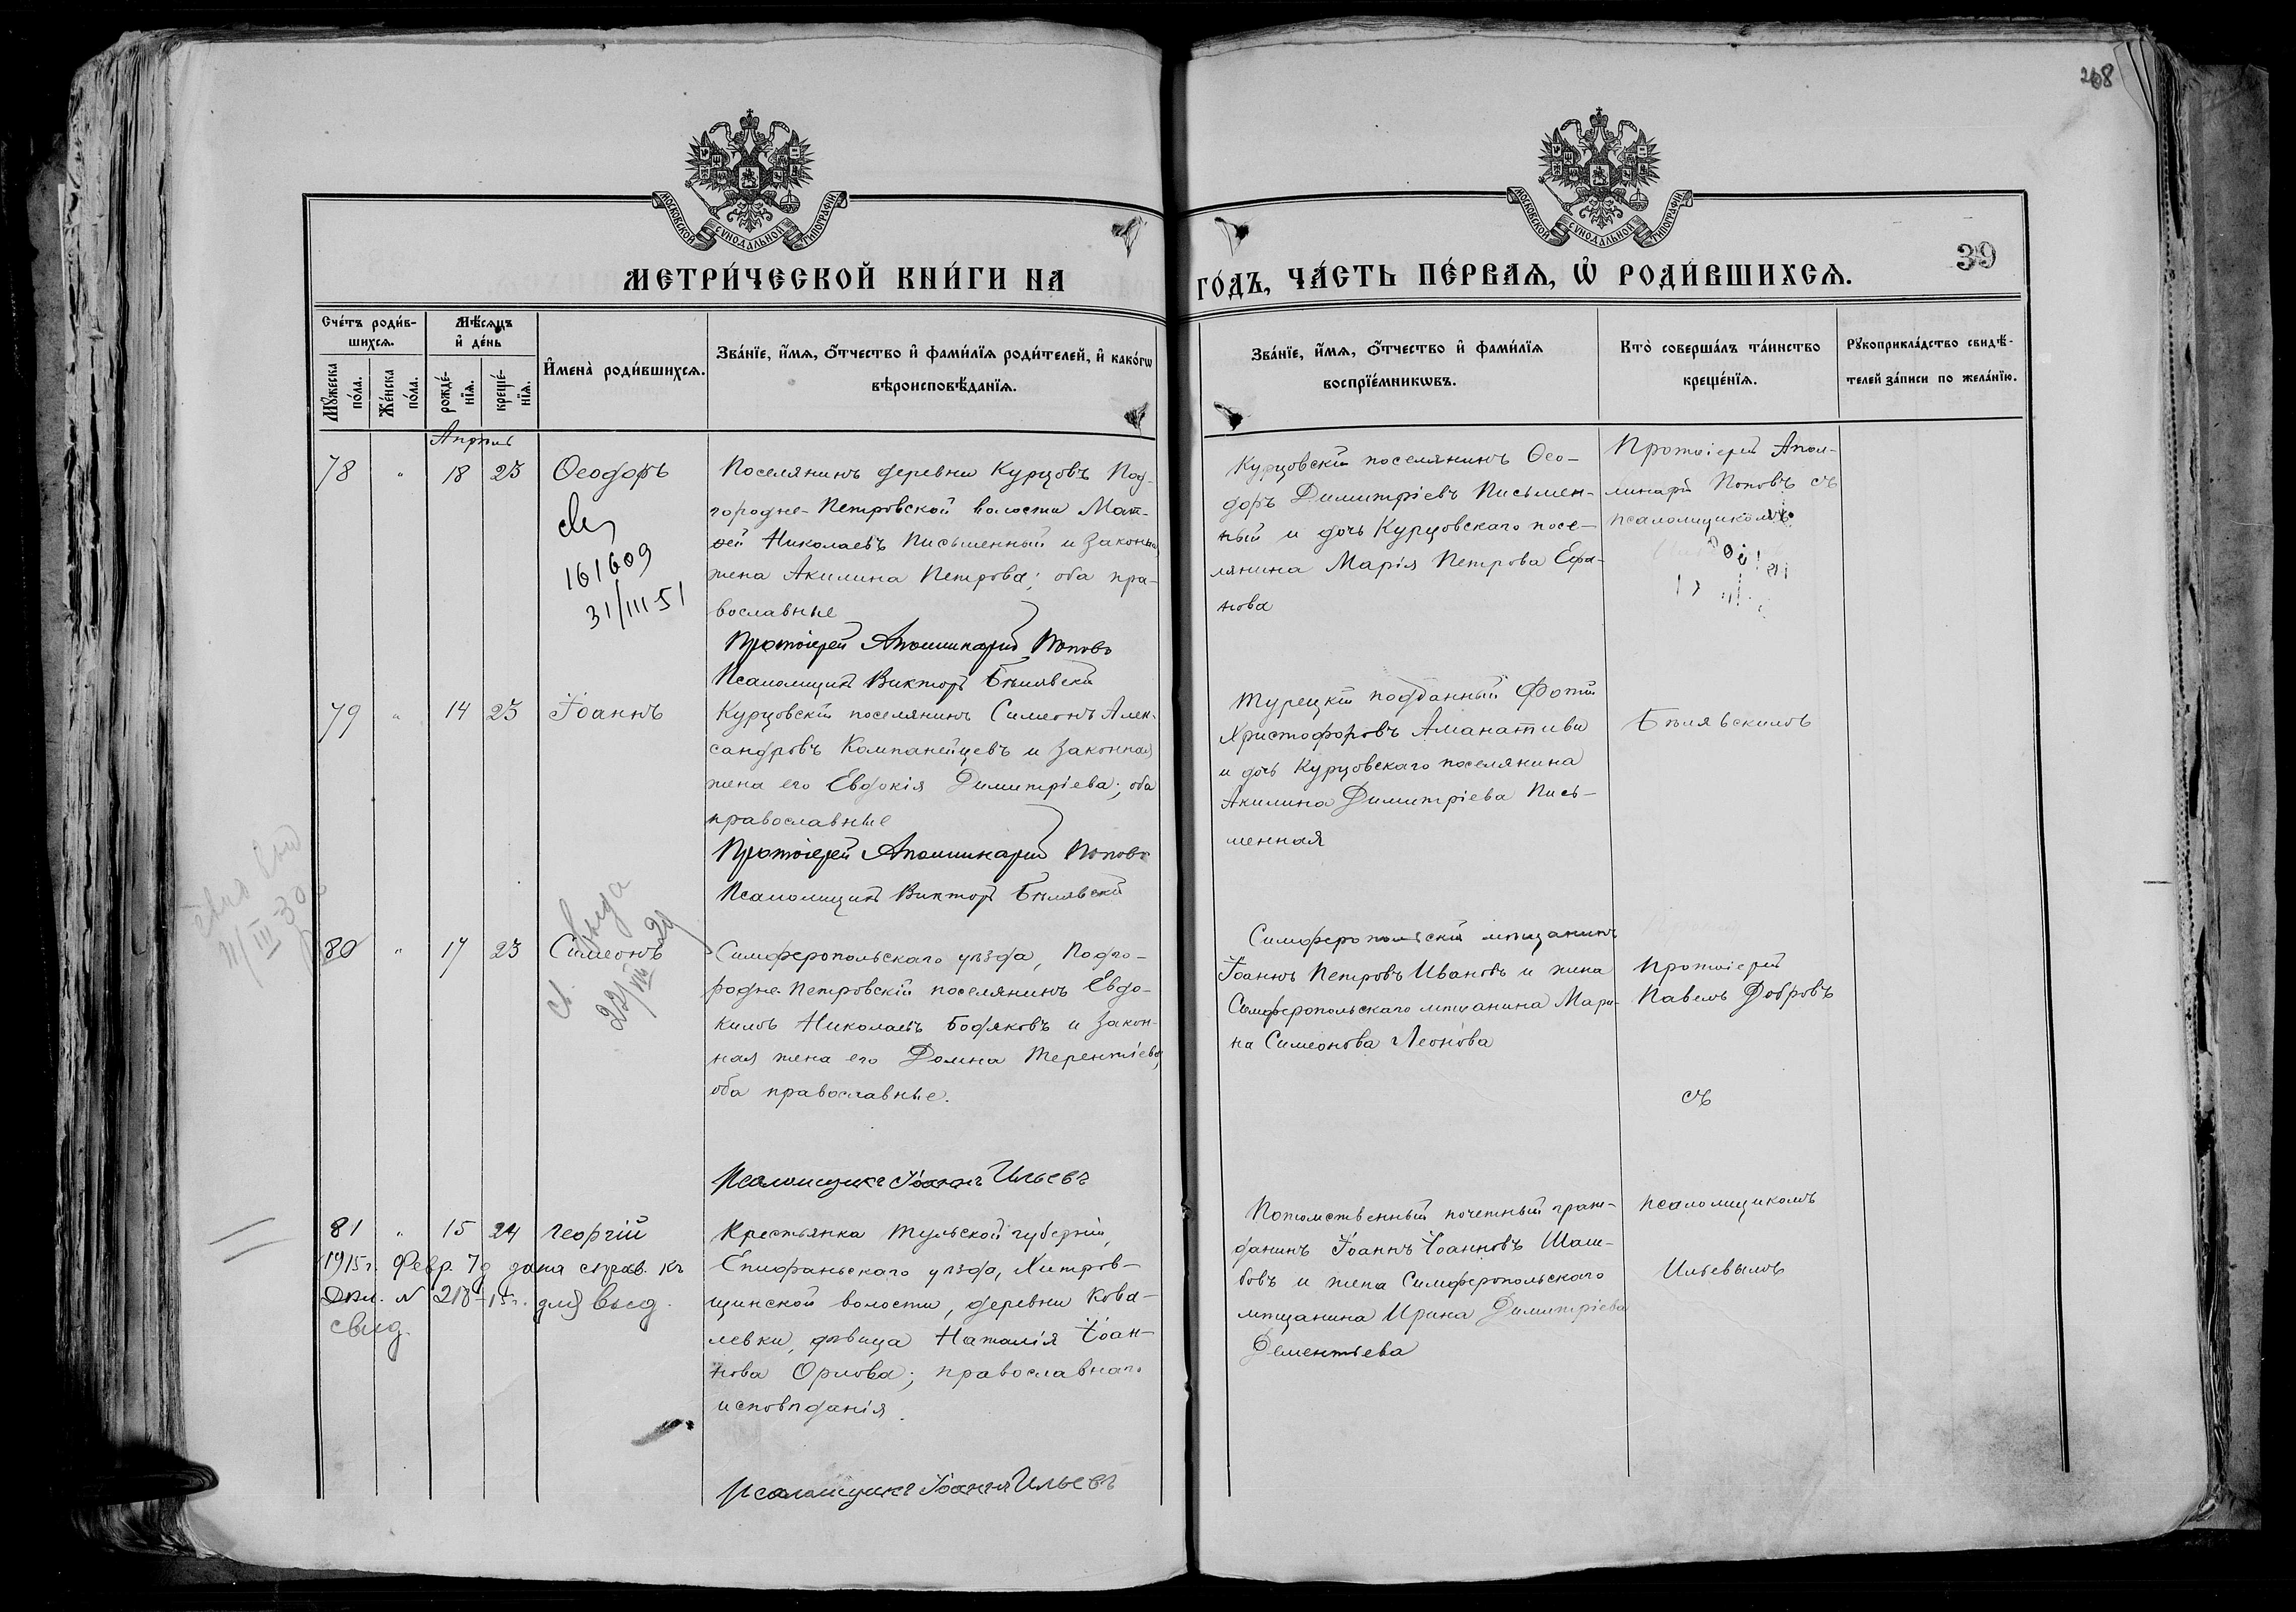 268
МОСКОВСКОЙ СУНОДАЛЬНОЙ ТИПОГРАФІИ
МОСКОВСКОЙ СУНОДАЛЬНОЙ ТИПОГРАФІИ
39
МЕТРИ́ЧЕСКОЙ КНИ́ГИ НА ГО́ДЪ, ЧА́СТЬ ПЕ́РВАѦ, Ѡ РОДИ́ВШИХСѦ.
Сче́тъ роди́в-
шихсѧ.
Мꙋ́жеска
по́ла.
Же́нска
по́ла.
Мѣ́сѧцъ
и де́нь
рожде́-
нїѧ.
креще́-
нїѧ.
Имена̀ роди́вшихсѧ.
Зва́нїе, и́мѧ, ѻ́тчество и фами́лїѧ роди́телей, и како́гѡ
вѣроисповѣ́данїѧ.
Зва́нїе, и́мѧ, ѻ́тчество и фами́лїѧ
воспрїе́мникѡвъ.
Кто̀ соверша́лъ та́инство
креще́нїѧ.
Рꙋкоприкла́дство свидѣ́-
телей за́писи по жела́нїю.
Апрѣль
78 " 18 23 Ѳеодоръ
161609
31/III-51
Поселянинъ деревни Курцовъ Под-
городне-Петровской волости Мат-
ѳей Николаевъ Письменный и законная
жена Акилина Петрова; оба пра-
вославные
Протоіерей Аполлинарій Поповъ
Псаломщикъ Викторъ Бѣлявскій
Курцовскій поселянинъ Ѳео-
доръ Димитріевъ Письмен-
ный и дочь Курцовскаго посе-
лянина Марія Петрова Ефа-
нова
Протоіерей Апол-
линарій Поповъ съ
псаломщикомъ
79 " 14 23 Іоаннъ
Курцовскій поселянинъ Симеонъ Алек-
сандровъ Компанейцевъ и законная
жена его Евдокія Димитріева; оба
православные
Протоіерей Аполлинарій Поповъ
Псаломщикъ Викторъ Бѣлявскій
Турецкій подданный Фотій
Христофоровъ Аманатиди
и дочь Курцовскаго поселянина
Акилина Димитріева Пись-
менная
Бѣлявскимъ
11/III-30
80 " 17 23 Симеонъ
22/III 29
Симферопольскаго уѣзда, Подго-
родне-Петровскій поселянинъ Евдо-
кимъ Николаевъ Бодяковъ и закон-
ная жена его Домна Терентіева,
оба православные.
Псаломщикъ Іоаннъ Ильевъ
Симферопольскій мѣщанинъ
Іоаннъ Петровъ Ивановъ и жена
Симферопольскаго мѣщанина Мари-
на Симеонова Леонова
Протоіерей
Павелъ Добровъ
съ
81 " 15 24 Георгій
1915 г. Февр. 7 д дана справ. къ
№ 218-15 г. для выд.
свид.
Крестьянка Тульской губерніи,
Епифаньскаго уѣзда, Хитров-
щинской волости, деревни Кова-
левки, дѣвица Наталія Іоан-
нова Орлова; православнаго
исповѣданія.
Псаломщикъ Іоаннъ Ильевъ
Потомственный почетный граж-
данинъ Іоаннъ Іоанновъ Шам-
бовъ и жена Симферопольскаго
мѣщанина Ирина Димитріева
Дементьева
псаломщикомъ
Ильевымъ